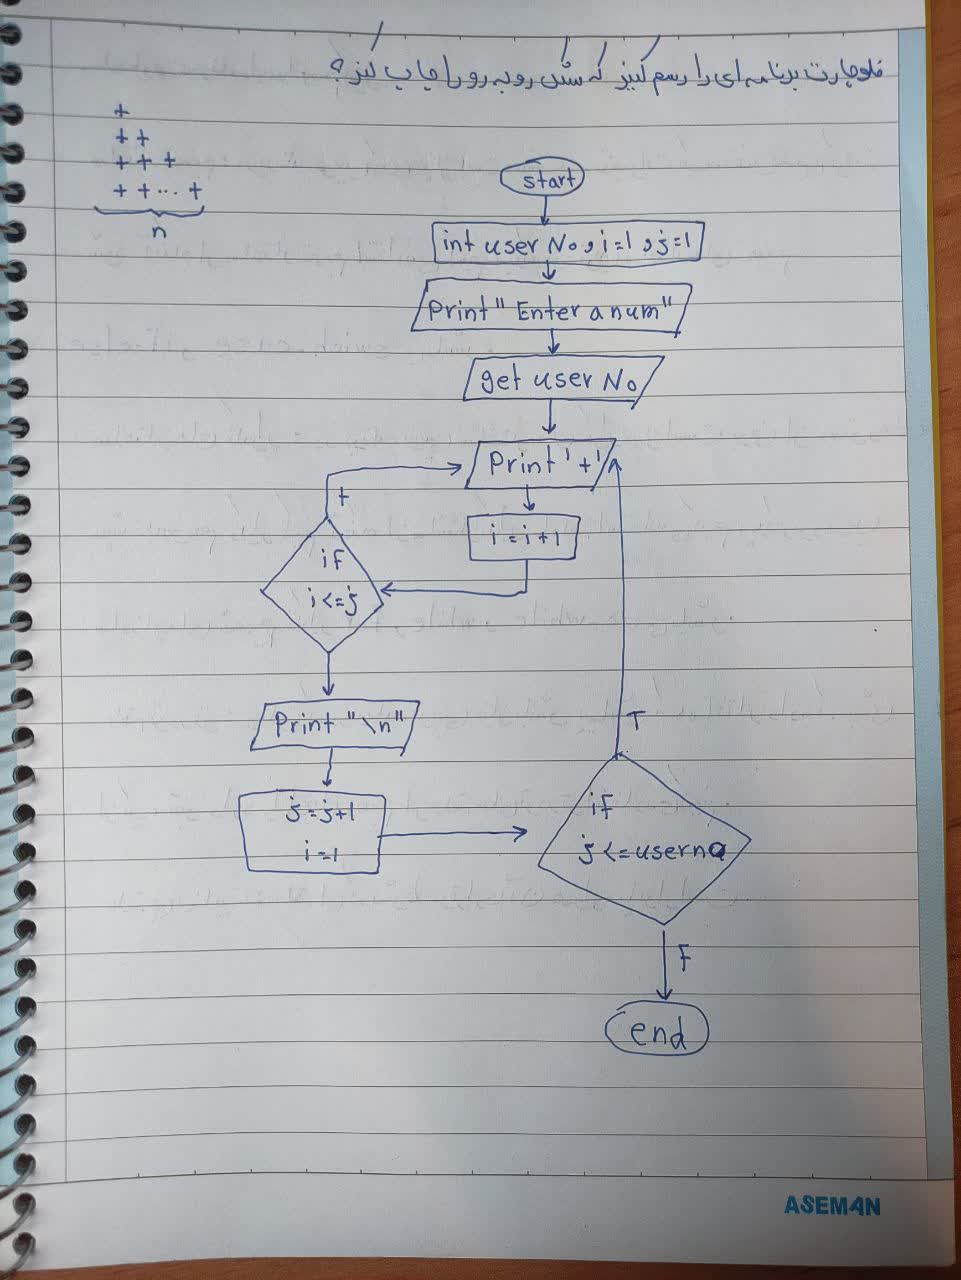 فلوچارت برنامه ای را رسم کنید که شکل روبه رو را چاپ کند؟
+
+ +
+ + +
+ + ... +
n
start
int user No , i=1 , j=1
Print " Enter a num"
get user No
Print '+'
i = i+1
t
if
i <= j
Print "\n"
j = j+1
i = 1
T
if
j <= userno
F
end
ASEMAN